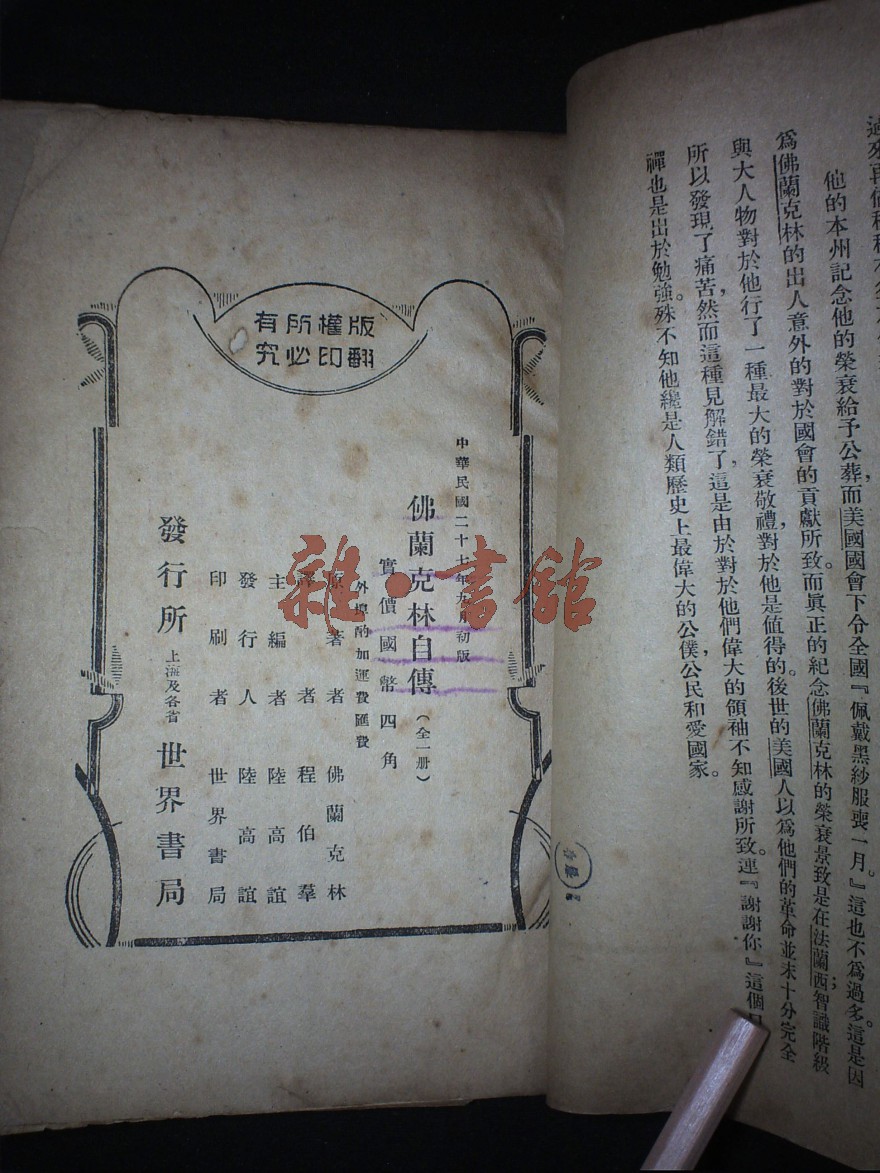 他的本州記念他的榮衰給予公葬，而美國國會下令全國『佩戴黑紗服喪一月。』這也不爲過多。這是因
爲佛蘭克林的出人意外的對於國會的貢獻所致。而眞正的紀念佛蘭克林的榮衰景致是在法蘭西智識階級；
與大人物對於他行了一種最大的榮衰敬禮，對於他是值得的。後世的美國人以爲他們的革命並未十分完全
所以發現了痛苦，然而這種見解錯了，這是由於對於他們偉大的領袖不知感謝所致。連『謝謝你』這個
禪也是出於勉強。殊不知他纔是人類歷史上最偉大的公僕，公民和愛國家。
版權所有
翻印必究
中華民國二十七年九月初版
佛蘭克林自傳（全一册）
實價國幣四角
外埠酌加運費匯費
原著者 佛蘭克林
譯者 程伯羣
主編者 陸高誼
發行人 陸高誼
印刷者 世界書局
發行所 上海及各省 世界書局
雜·書館